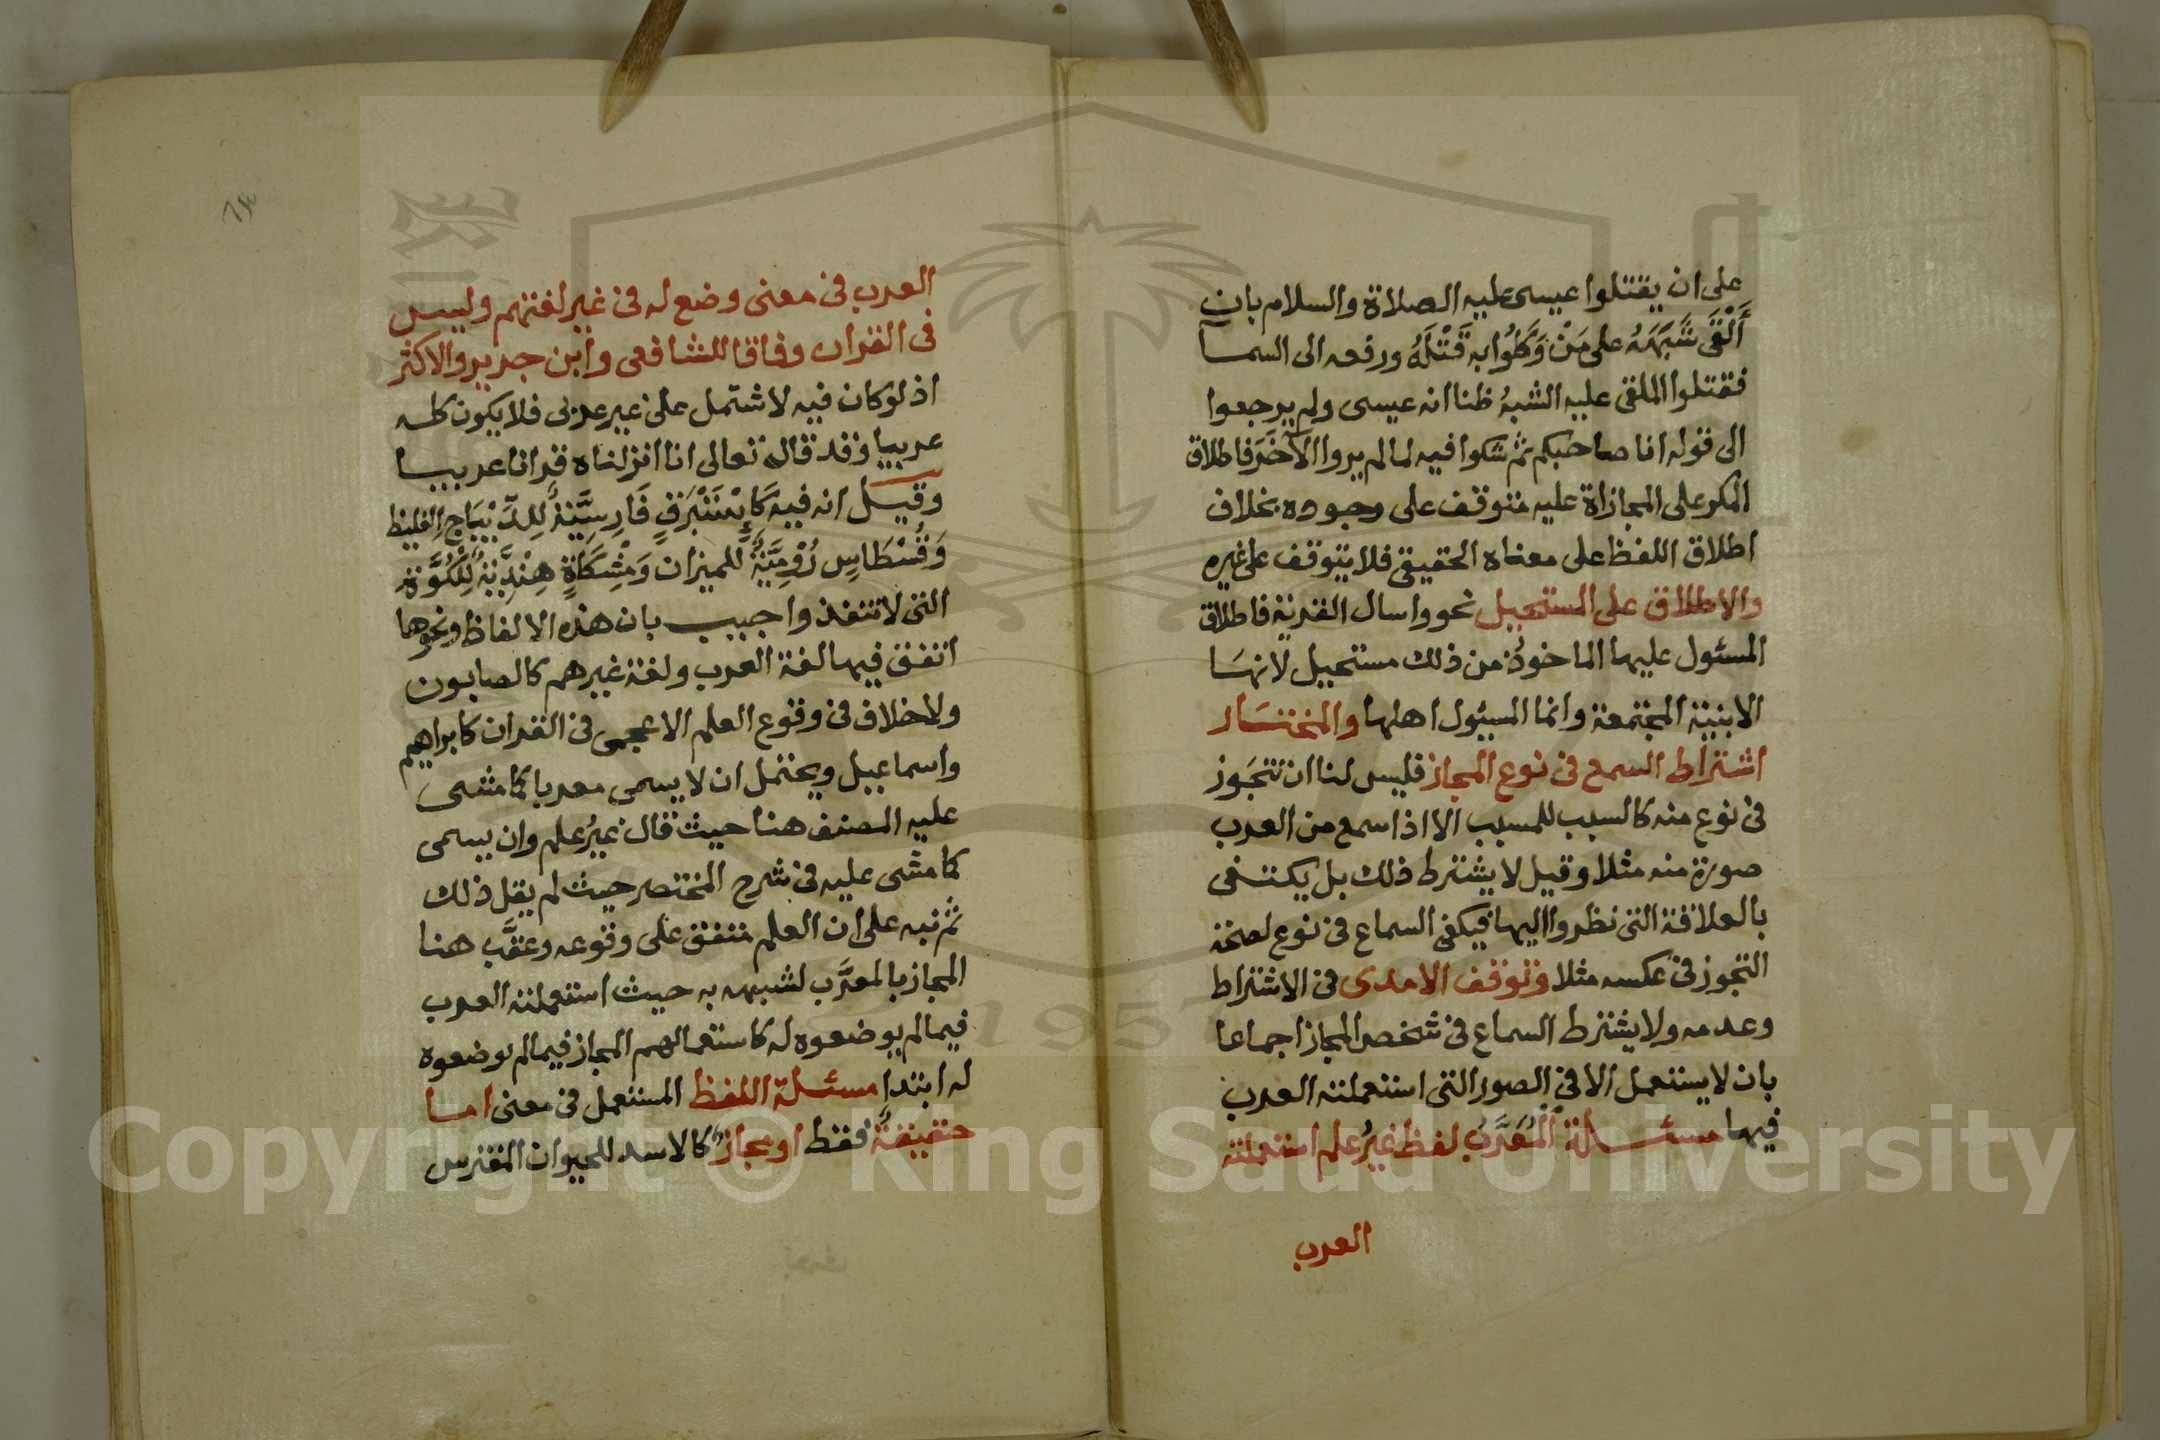 على ان يقتلوا عيسى عليه الصلاة والسلام بان
أَلْقَى شَبَهَهُ على مَنْ وَكَّلُوا به قَتْلَهُ ورفعه الى السما
فقتلوا الملقى عليه الشبهُ ظنا انه عيسى ولم يرجعوا
الى قوله انا صاحبكم ثم شكوا فيه لما لم يروا الآخَرَ فاطلاق
المكر على المجازاة عليه متوقف على وجوده بخلاف
اطلاق اللفظ على معناه الحقيقى فلا يتوقف على غيره
والاطلاق على المستحيل نحو واسال القرية فاطلاق
المسئول عليها الماخوذُ من ذلك مستحيل لانهَا
الابنية المجتمعة وانما المسئول اهلها والمختَسَار
اشتراط السمع فى نوع المجاز فليس لنا ان نتجَوز
فى نوع منه كالسبب للمسبب الا اذا سمع من العرب
صورة منه مثلا وقيل لا يشترط ذلك بل يكتفى
بالعلاقة التى نظروا اليها فيكفى السماع فى نوع لصحة
التجوز فى عكسه مثلا وتوقف الامدى فى الاشتراط
وعدمه ولا يشترط السماع فى شخص المجاز اجماعا
بان لا يستعمل الا فى الصور التى استعملته العرب
فيها مسئلة المُعَرَّبُ لفظ غيرُ علم استعملته
العرب
العرب فى معنى وضع له فى غير لغتهم وليس
فى القران وفاقا للشافعى وابن جرير والاكثر
اذ لو كان فيه لاشتمل على غير عربى فلا يكون كله
عربيا وقد قال تعالى انا انزلناه قرانا عربيا
وقيل انه فيه كَإِسْتَبْرَقٍ فَارِسِيَّةٌ لِلدِّيْبَاجِ الغليظ
وَقُسْطَاسِ رُوْمِيَّةٌ للميزان وَمْشِكَاةٍ هِنْدِيَّةٌ لِلْكُوَّة
التى لا تنفذ واجيب بان هذه الالفاظ ونحوها
اتفق فيها لغة العرب ولغة غيرهم كالصابون
ولا خلاف فى وقوع العلم الاعجمى فى القران كابراهيم
واسماعيل ويحتمل ان لا يسمى معربا كما مشى
عليه المصنف هنا حيث قال غيرُ علم وان يسمى
كما مشى عليه فى شرح المختصر حيث لم يقل ذلك
ثم نبه على ان العلم متفق على وقوعه وعقَّب هنا
المجاز بالمعرَّب لشبهه به حيث استعملته العرب
فيما لم يوضعوه له كاستعمالهم المجاز فيما لم يوضعوه
له ابتدا مسئلة اللفظ المستعمل فى معنى اما
حقيقةٌ فقط او مجازٌ كالاسد للحيوان المفترس